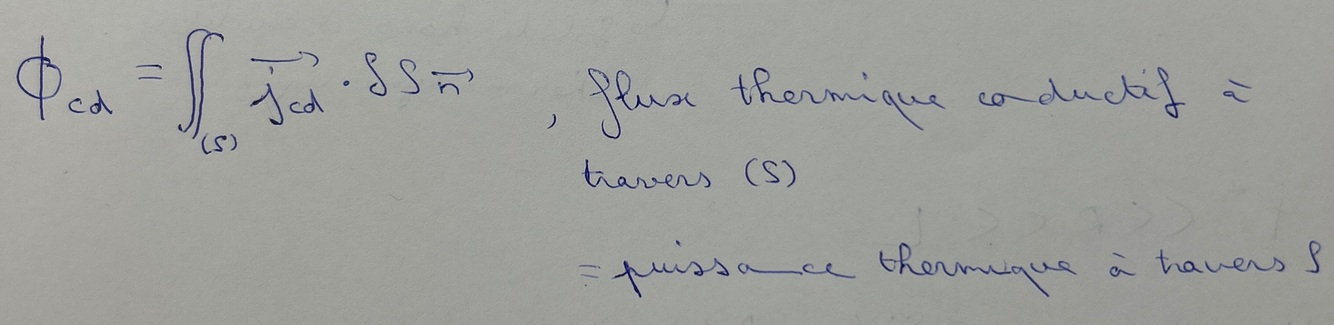 ϕ_cd = ∬_(S) j⃗_cd · δS n⃗ , flux thermique conductif à
travers (S)
= puissance thermique à travers S